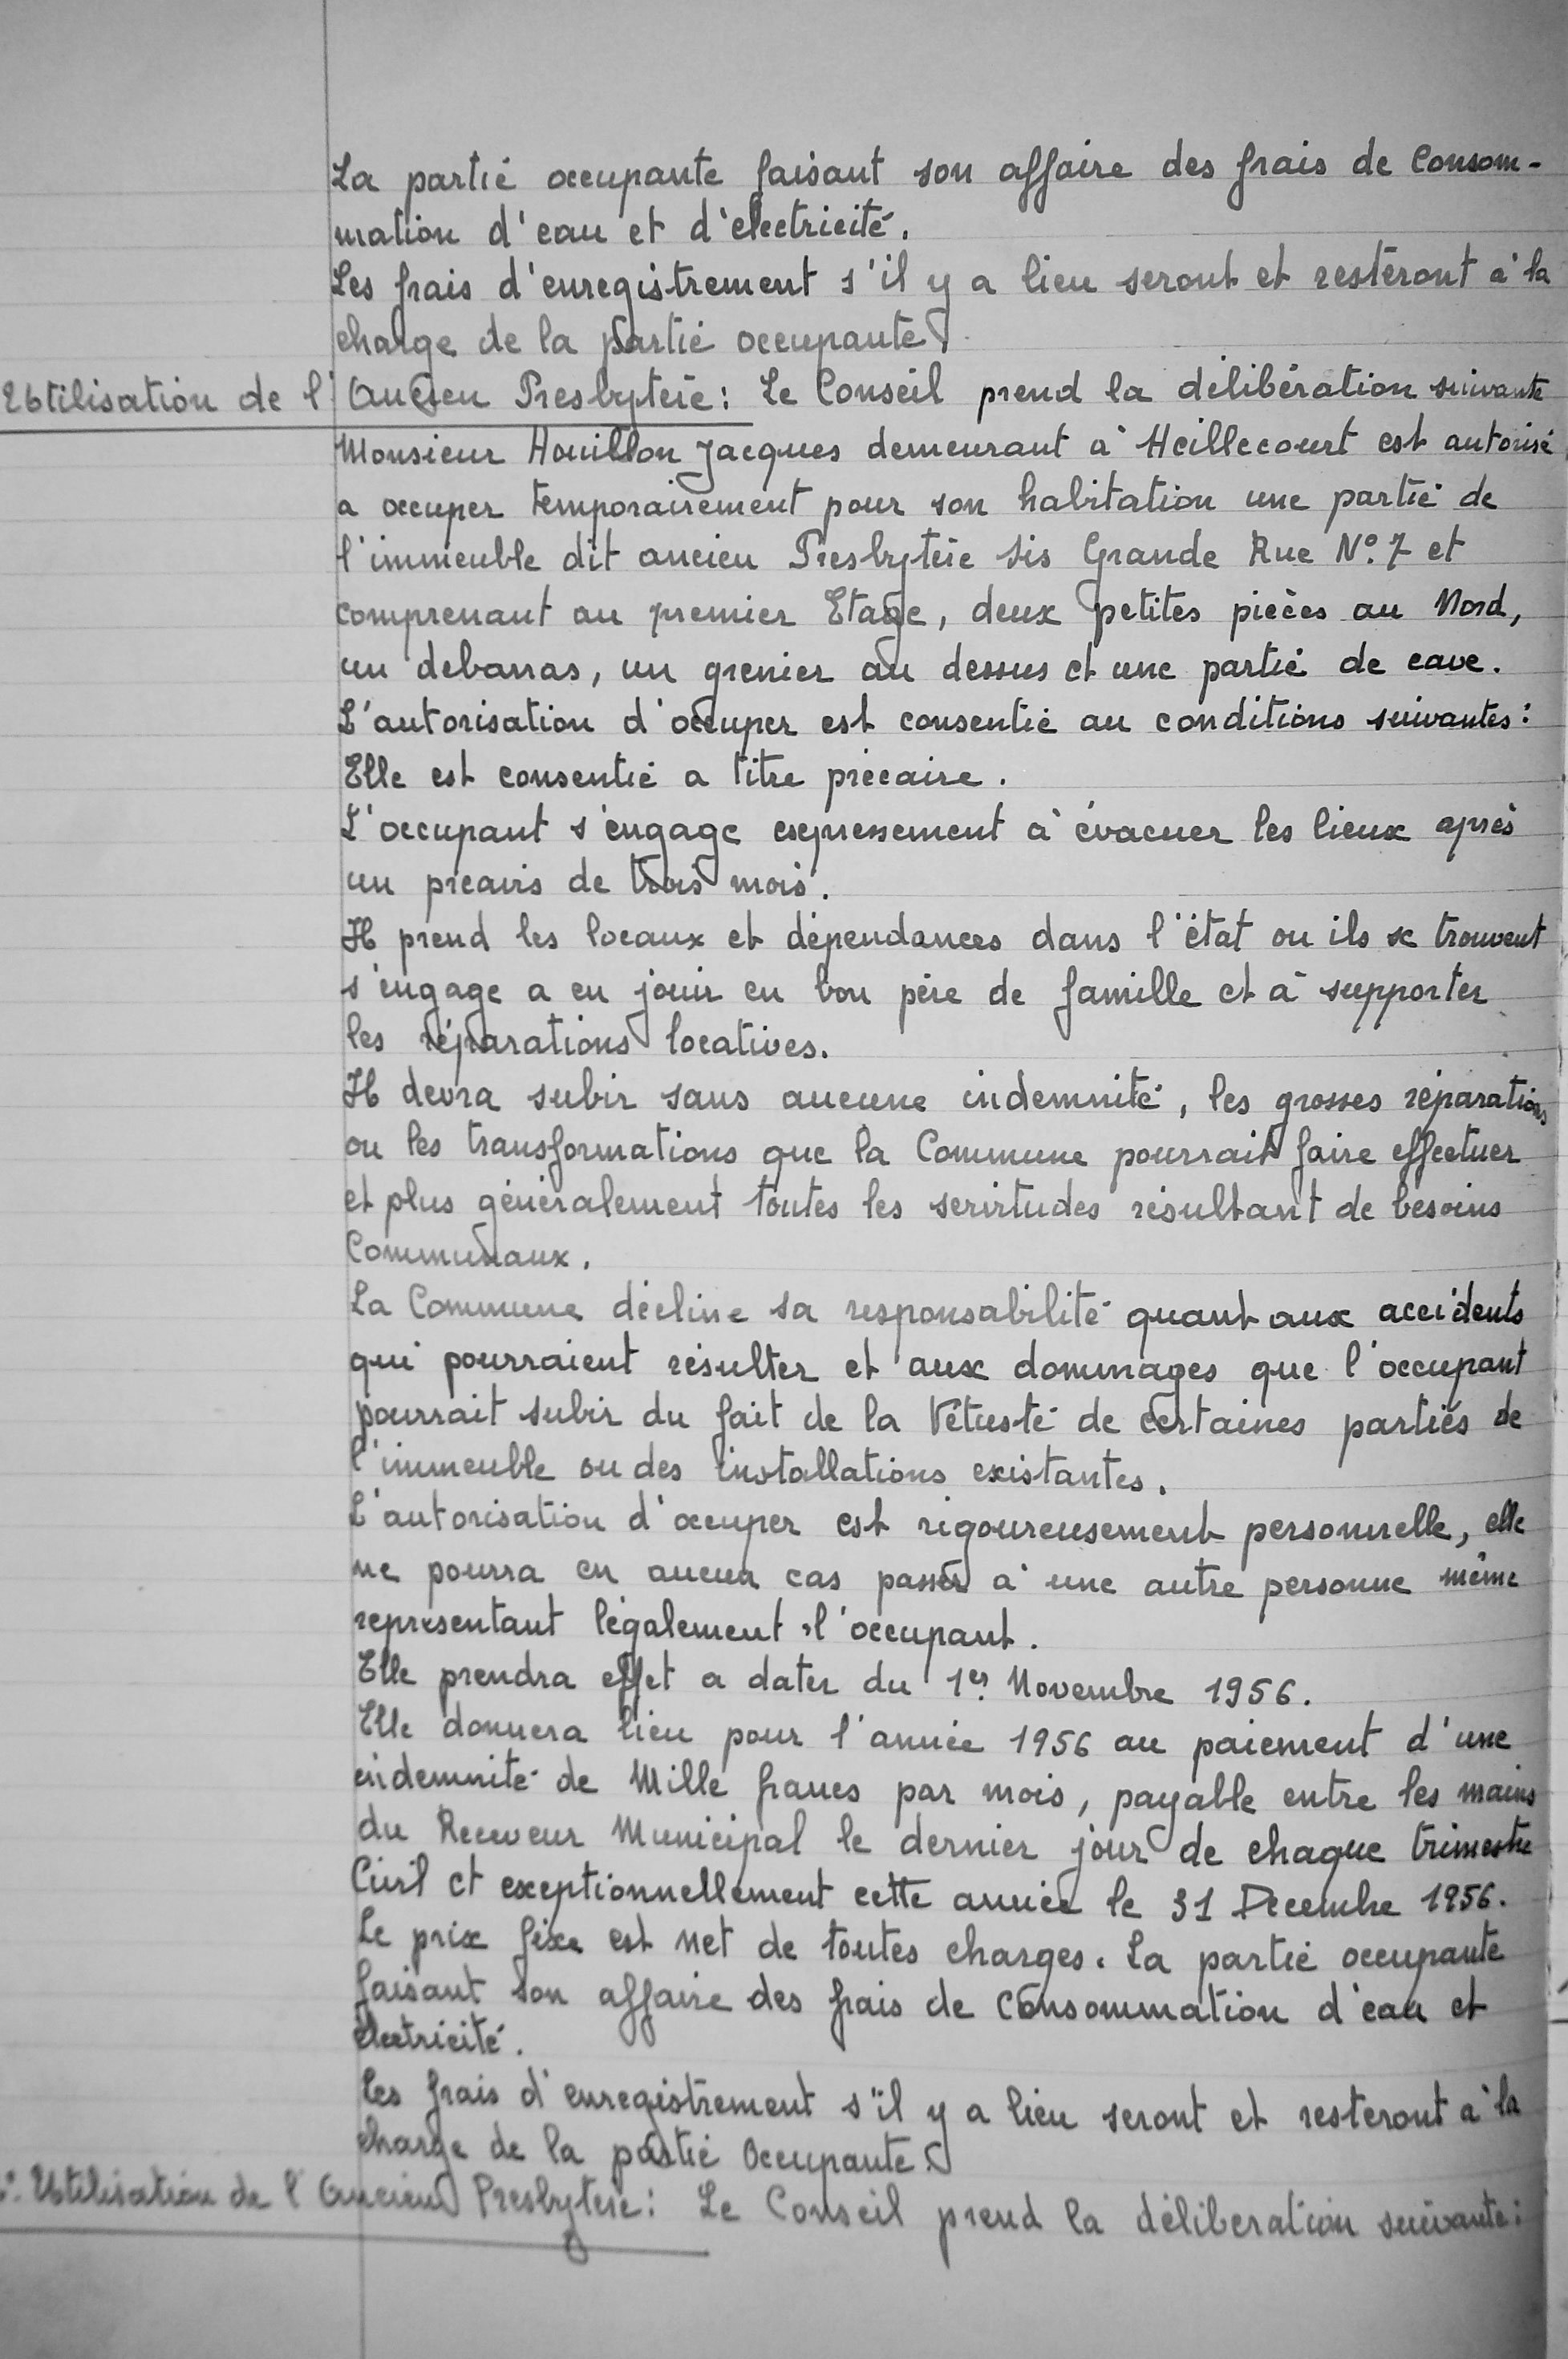 La partie occupante faisant son affaire des frais de Consom-
mation d'eau et d'electricité.
Les frais d'enregistrement s'il y a lieu seront et resteront à la
charge de la partie occupante.
Utilisation de l'Ancien Presbytère: Le Conseil prend la délibération suivante
Monsieur Houillon Jacques demeurant à Heillecourt est autorisé
a occuper temporairement pour son habitation une partie de
l'immeuble dit ancien Presbytère sis Grande Rue N° 7 et
comprenant au premier Etage, deux petites pièces au Nord,
un debarras, un grenier au dessus et une partie de cave.
L'autorisation d'occuper est consentie au conditions suivantes:
Elle est consentie a titre précaire.
L'occupant s'engage expressement à évacuer les lieux après
un préavis de trois mois.
Il prend les locaux et dépendances dans l'état ou ils se trouvent
s'engage a en jouir en bon père de famille et à supporter
les réparations locatives.
Il devra subir sans aucune indemnité, les grosses réparations
ou les transformations que la Commune pourrait faire effectuer
et plus généralement toutes les servitudes résultant de besoins
Communaux.
La Commune décline sa responsabilité quant aux accidents
qui pourraient résulter et aux dommages que l'occupant
pourrait subir du fait de la Vétusté de certaines parties de
l'immeuble ou des installations existantes.
L'autorisation d'occuper est rigoureusement personnelle, elle
ne pourra en aucun cas passer à une autre personne même
représentant légalement l'occupant.
Elle prendra effet a dater du 1er Novembre 1956.
Elle donnera lieu pour l'année 1956 au paiement d'une
indemnité de Mille francs par mois, payable entre les mains
du Receveur Municipal le dernier jour de chaque trimestre
Civil et exceptionnellement cette année le 31 Decembre 1956.
Le prix fixe est net de toutes charges. La partie occupante
faisant son affaire des frais de Consommation d'eau et
électricité.
Les frais d'enregistrement s'il y a lieu seront et resteront à la
charge de la partie Occupante.
Utilisation de l'Ancien Presbytère: Le Conseil prend la délibération suivante: